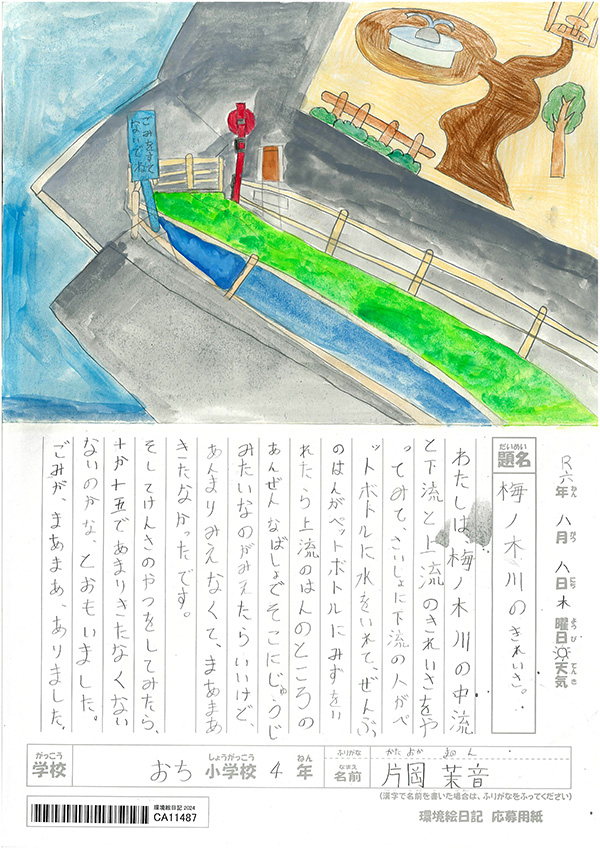 ごみをすて
ないでね
R六年 八月 八日 木曜日 天気
だいめい
題名
梅ノ木川のきれいさ。
わたしは、梅ノ木川の中流
と下流と上流のきれいさをや
ってみて、さいしょに下流の人がペ
ットボトルに水をいれて、ぜんぶ
のはんがペットボトルにみずをい
れたら上流のはんのところの
あんぜんなばしょでそこにじゅうじ
みたいなのがみえたらいいけど、
あんまりみえなくて、まあまあ
きたなかったです。
そしてけんさのやつをしてみたら、
十か十五であまりきたなくない
ないのかな、とおもいました。
ごみが、まあまあ、ありました。
がっこう
学校
おち
しょうがっこう
小学校
4
ねん
年
ふりがな
かた おか ま のん
なまえ
名前
片岡 茉音
(漢字で名前を書いた場合は、ふりがなをふってください)
環境絵日記 2024
CA11487
環境絵日記 応募用紙